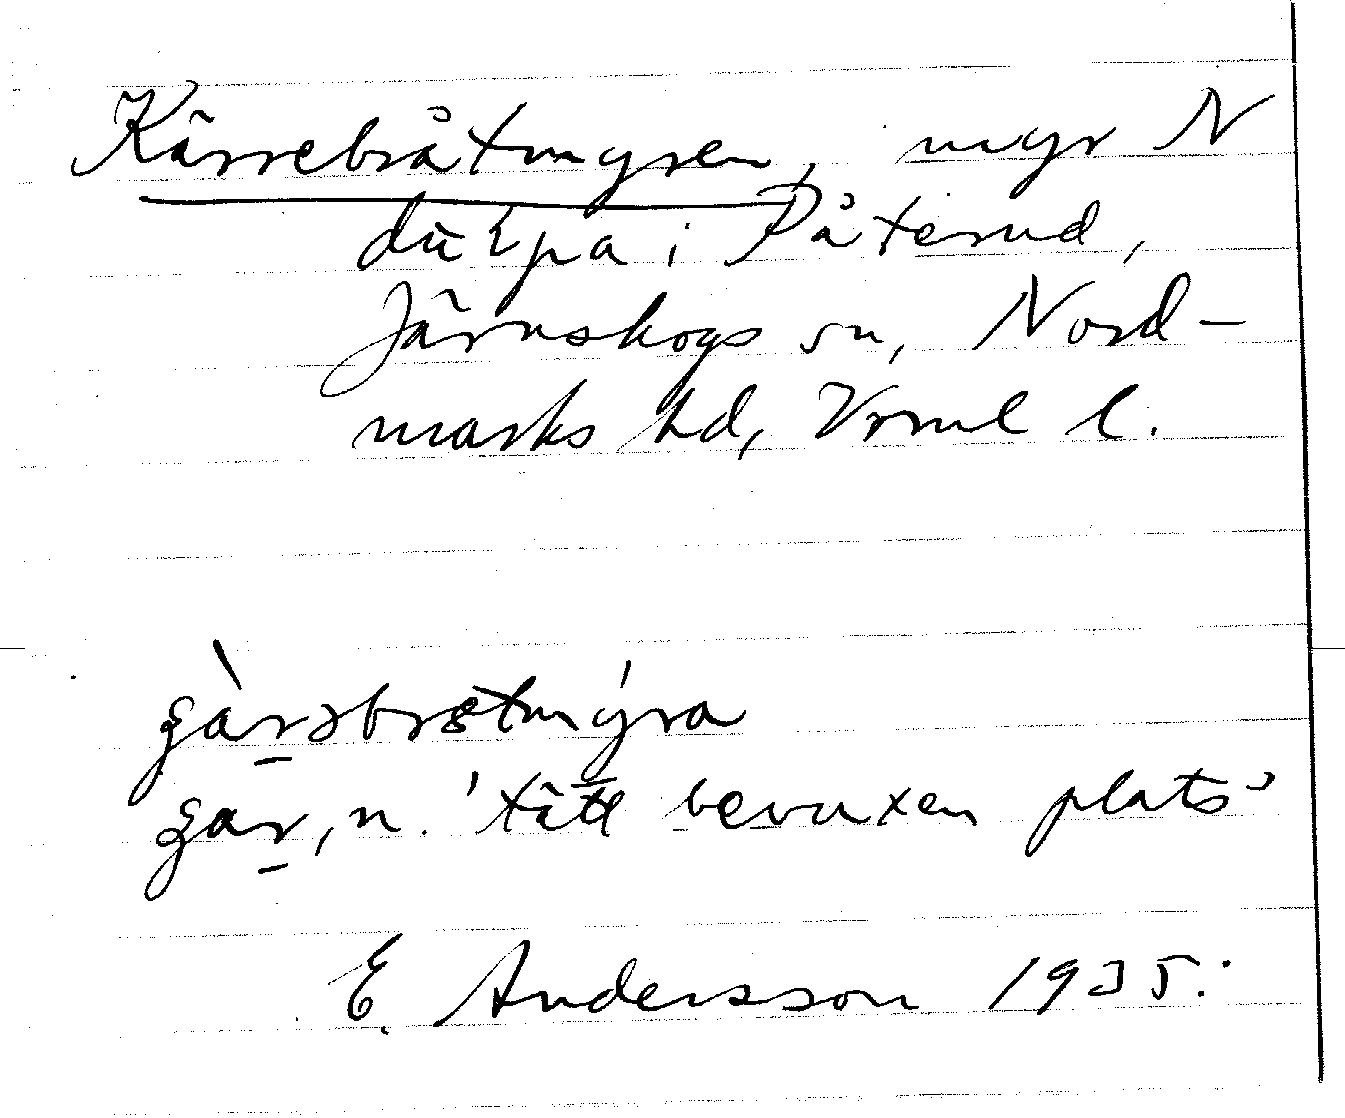 Kärrebråtmyren, myr N
på i Påterud,
Järnskogs sn, Nord-
marks hd, Vrml l.
gàrəbrətmýra
gar, n. 'tätt bevuxen plats'
E. Andersson 1935.